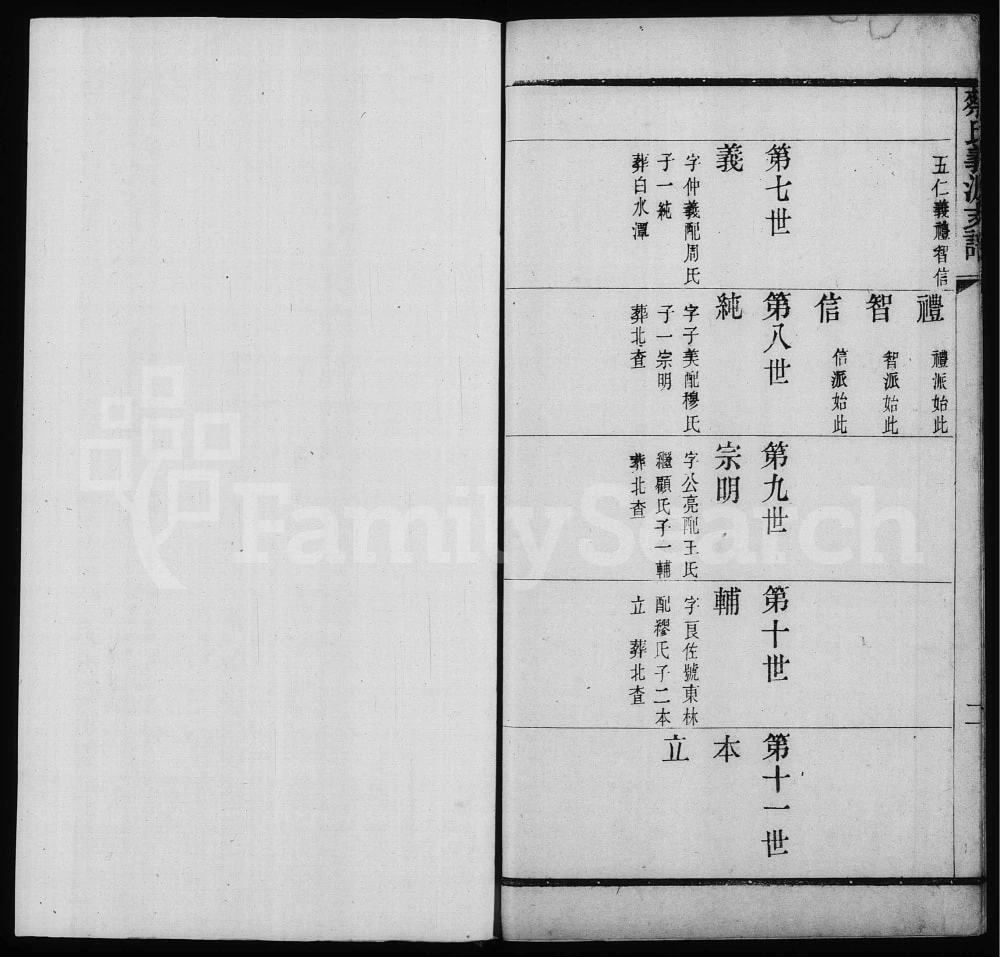 蔡氏義派支譜
二
五仁義禮智信
禮
禮派始此
智
智派始此
信
信派始此
第七世
義
字仲義配周氏
子一純
葬白水潭
第八世
純
字子美配穆氏
子一宗明
葬北查
第九世
宗明
字公亮配王氏
繼顧氏子一輔
葬北查
第十世
輔
字良佐號東林
配穆氏子二本
立 葬北查
第十一世
本
立
FamilySearch